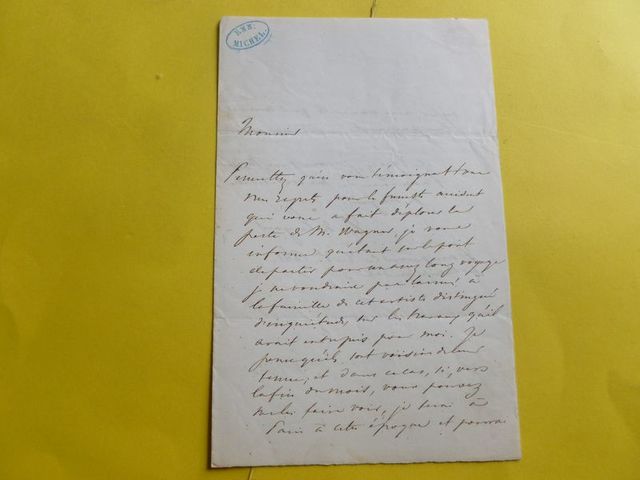 ERN. MICHEL
Monsieur
Permettez qu'en vous témoignant
mes regrets pour le funeste accident
qui vous a fait déplorer la
perte de M. Wagner, je vous
informe qu'étant sur le point
de partir pour un assez long voyage
je ne voudrais pas laisser à
la famille de cet artiste distingué
d'inquiétude sur les travaux qu'il
avait entrepris pour moi. Je
pense qu'ils sont voisins de leur
terme, et dans ce cas, si, vers
la fin du mois, vous pouvez
me les faire voir, je serai à
Paris à cette époque et pourrai